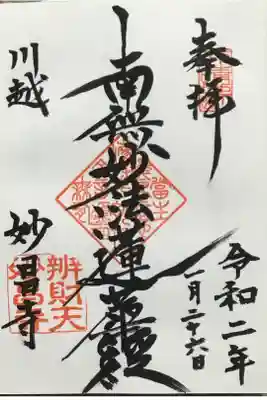 奉拝
令和二年
一月二十六日
南無妙法蓮華経
川越
妙昌寺
辨財天